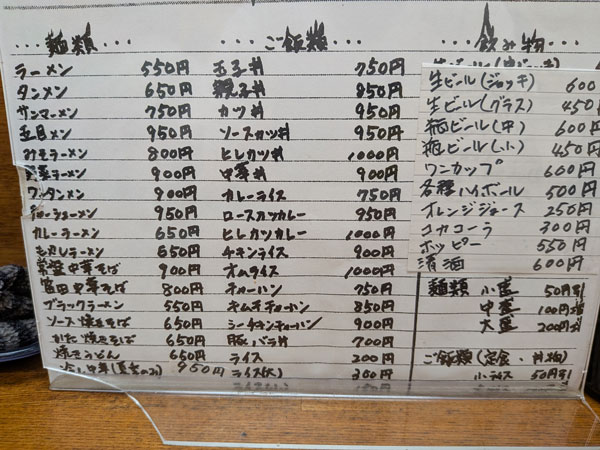 麺類
ラーメン 550円
タンメン 650円
サンマーメン 750円
五目メン 950円
みそラーメン 800円
野菜ラーメン 900円
ワンタンメン 900円
チャーシューメン 950円
カレーラーメン 650円
もやしラーメン 650円
常盤中華そば 900円
富田中華そば 800円
ブラックラーメン 550円
ソース焼きそば 650円
かた焼きそば 650円
焼きうどん 650円
冷し中華(夏季のみ) 950円
ご飯類
玉子丼 750円
親子丼 850円
カツ丼 950円
ソースカツ丼 950円
ヒレカツ丼 1000円
中華丼 900円
カレーライス 750円
ロースカツカレー 950円
ヒレカツカレー 1000円
チキンライス 900円
オムライス 1000円
チャーハン 750円
キムチチャーハン 850円
シーチキンチャーハン 900円
豚バラ丼 700円
ライス 200円
ライス(大) 300円
飲み物
生ビール(ジョッキ) 600
生ビール(グラス) 450
瓶ビール(中) 600円
瓶ビール(小) 450円
ワンカップ 600円
各種ハイボール 500円
オレンジジュース 250円
コカコーラ 300円
ホッピー 550円
清酒 600円
麺類 小盛 50円引
中盛 100円増
大盛 200円増
ご飯類(定食・丼物)
小ライス 50円引